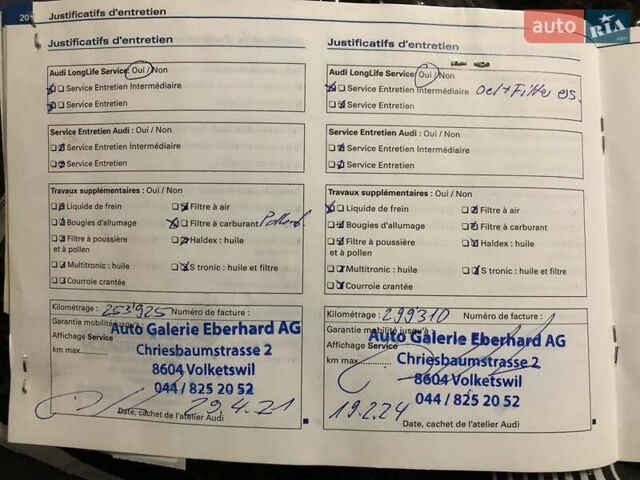 20
Justificatifs d'entretien
auto RIA
.com
Justificatifs d'entretien
Audi LongLife Service: Oui / Non
Service Entretien Intermédiaire
Service Entretien
Service Entretien Audi : Oui / Non
Service Entretien Intermédiaire
Service Entretien
Travaux supplémentaires : Oui / Non
Liquide de frein
Filtre à air
Bougies d'allumage
Filtre à carburant
Filtre à poussière
et à pollen
Haldex : huile
Multitronic : huile
S tronic : huile et filtre
Courroie crantée
Kilométrage : 253'925 Numéro de facture :
Garantie mobilité jusqu'à :
Affichage Service
km max
Auto Galerie Eberhard AG
Chriesbaumstrasse 2
8604 Volketswil
044 / 825 20 52
29.4.21
Date, cachet de l'atelier Audi
Justificatifs d'entretien
Audi LongLife Service: Oui / Non
Service Entretien Intermédiaire Oel + Filter ers.
Service Entretien
Service Entretien Audi : Oui / Non
Service Entretien Intermédiaire
Service Entretien
Travaux supplémentaires : Oui / Non
Liquide de frein
Filtre à air
Bougies d'allumage
Filtre à carburant
Filtre à poussière
et à pollen
Haldex : huile
Multitronic : huile
S tronic : huile et filtre
Courroie crantée
Kilométrage : 299310 Numéro de facture :
Garantie mobilité jusqu'à :
Affichage Service
km max
Auto Galerie Eberhard AG
Chriesbaumstrasse 2
8604 Volketswil
044 / 825 20 52
19.2.24
Date, cachet de l'atelier Audi